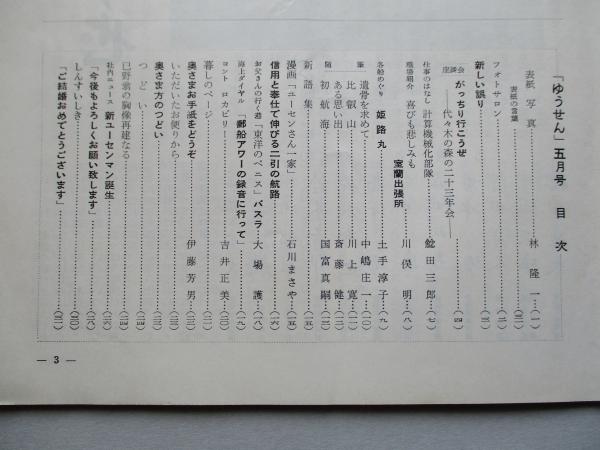 「ゆうせん」五月号 目次
表紙 写真……林 隆一…(一)
表紙の言葉……(三)
フォトサロン……(二)
新しい誇り……(三)
座談会 がっちり行こうぜ
――代々木の森の二十三年会――……(四)
仕事のはなし 計算機械化部隊……鯰田三郎…(七)
職場紹介 喜びも悲しみも 室蘭出張所……川俣 明…(八)
各船めぐり 姫路丸……土手淳子…(九)
随筆
遺骨を求めて……中嶋庄一…(一〇)
比叡山……川上 寛…(一一)
ある思い出……斎藤 健…(一二)
初航海……国富真嗣…(一三)
新語集……(一五)
漫画「ユーセンさん一家」……石川まさや…(一五)
信用と奉仕で伸びる二引の航路……(一六)
お父さんの行く港「東洋のベニス」バスラ……大場 護…(一八)
海上ダイヤル 「郵船アワーの録音に行って」……(一九)
コント ロカビリー……吉井正美…(二〇)
暮しのページ……(二一)
奥さまお手紙をどうぞ……伊藤芳男…(二二)
いただいたお便りから……(二三)
奥さま方のつどい……(二三)
つどい……(二四)
巳野翁の胸像再建なる……(二四)
社内ニュース 新ユーセンマン誕生……(二六)
「今後もよろしくお願い致します」……(二八)
しんすいしき……(三〇)
「ご結婚おめでとうございます」……
— 3 —